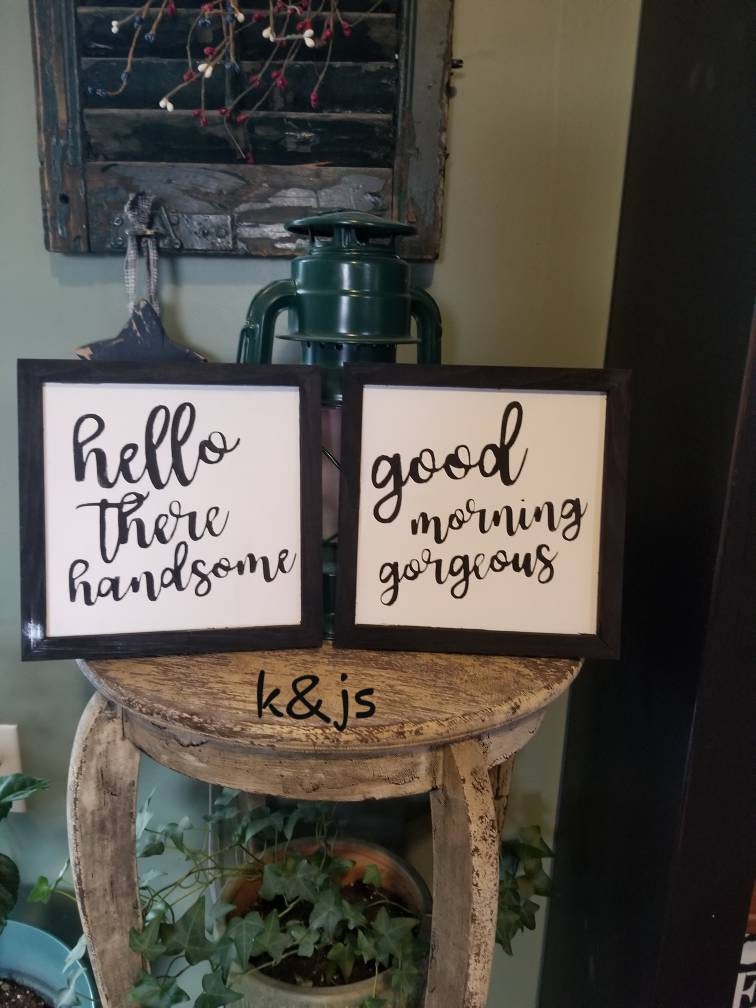 hello
there
handsome
good
morning
gorgeous
k&js